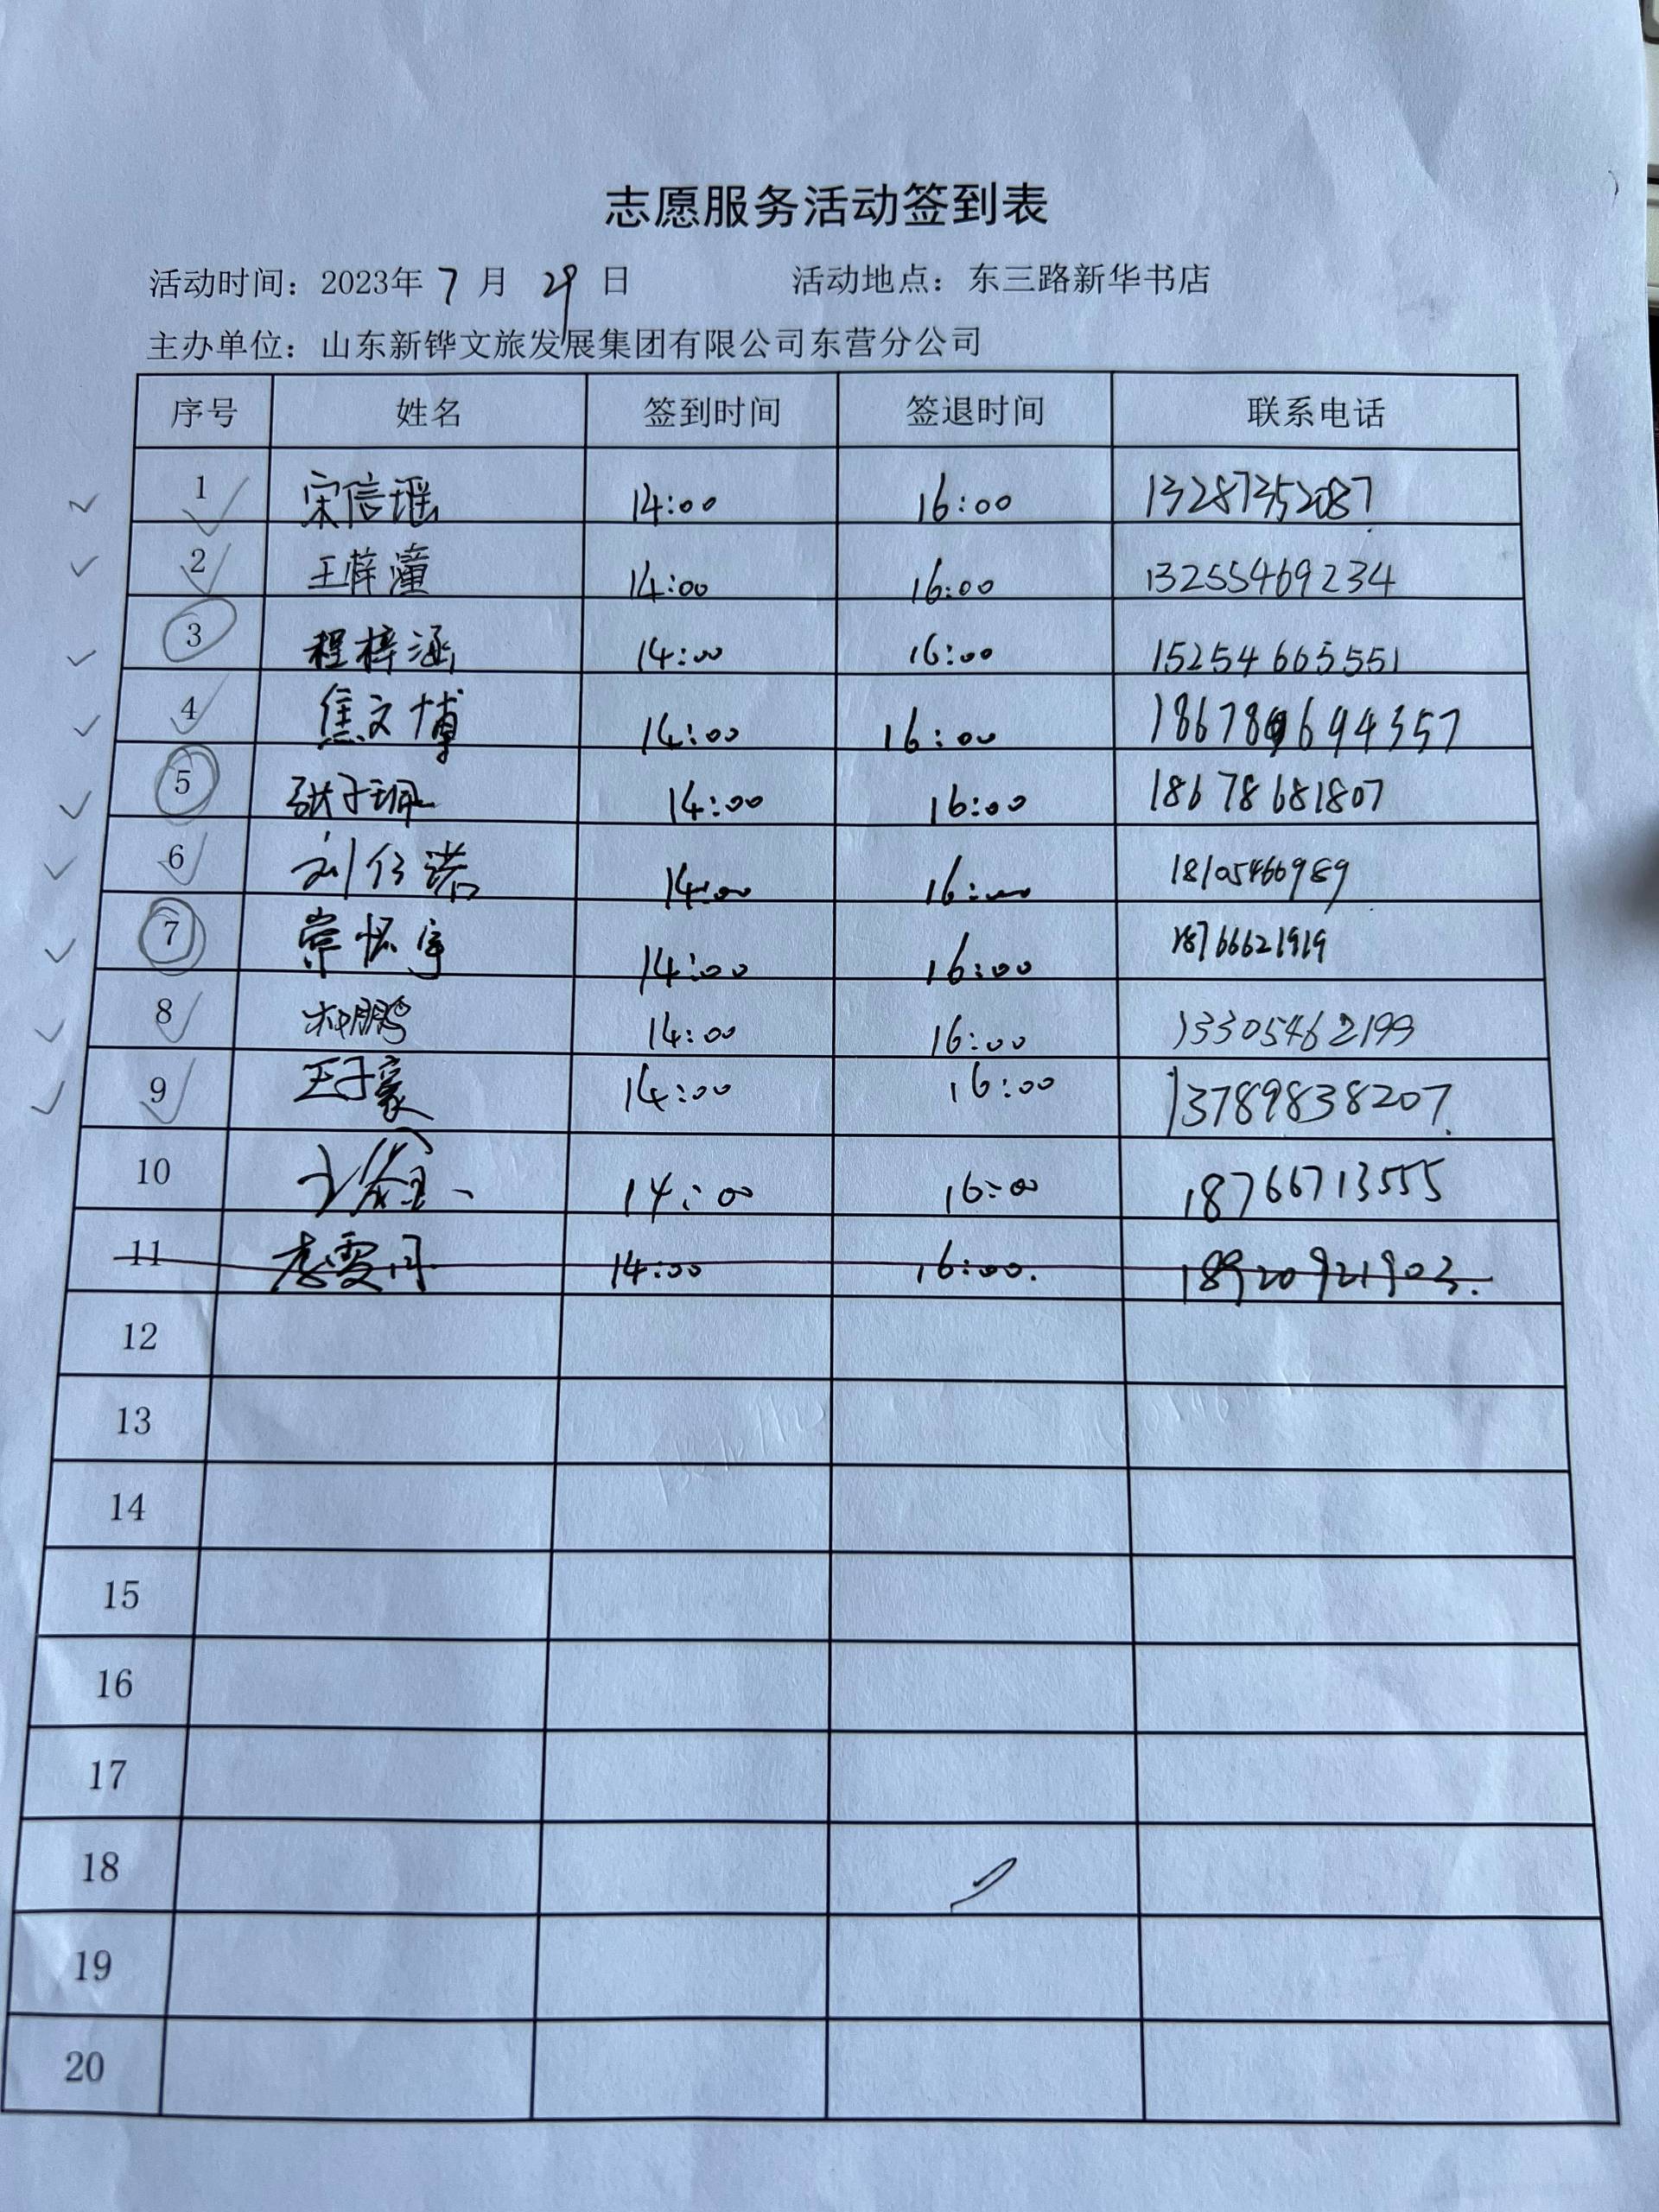 志愿服务活动签到表
活动时间：2023年 7 月 29 日 活动地点：东三路新华书店
主办单位：山东新铧文旅发展集团有限公司东营分公司
序号 姓名 签到时间 签退时间 联系电话
1 宋信瑶 14:00 16:00 13287352087
2 王梓潼 14:00 16:00 13255469234
3 程梓涵 14:00 16:00 15254665551
4 焦文博 14:00 16:00
5 张子珊 14:00 16:00 18678681807
6 刘仁浩 14:00 16:00 18105466989
7 常怀宇 14:00 16:00 18766621919
8 14:00 16:00 13305462199
9 王子豪 14:00 16:00 13789838207
10 14:00 16:00 18766713555
11 李雯丹 14:00 16:00. 18920921903.
12
13
14
15
16
17
18
19
20